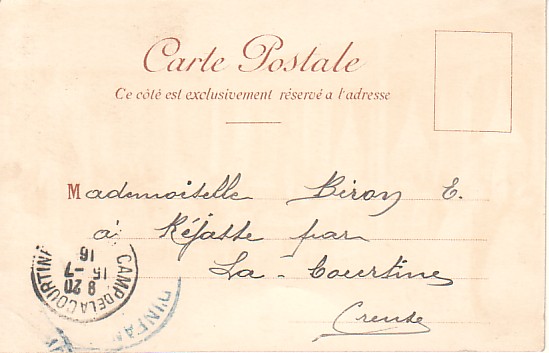 Carte Postale
Ce côté est exclusivement réservé a l'adresse
Mademoiselle Biron E.
à Réjatte par
La-Courtine
Creuse
CAMP DE LA COURTIN
8 20
15 -7
16
D'INFAN